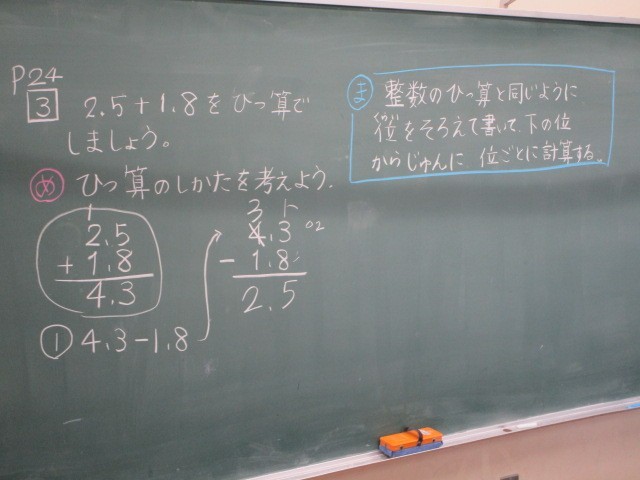 P24
3 2.5+1.8をひっ算で
しましょう。
め ひっ算のしかたを考えよう.
1
2.5
+ 1.8
4.3
① 4.3-1.8
3
4.3
- 1.8
2.5
ま 整数のひっ算と同じように
位をそろえて書いて、下の位
からじゅんに 位ごとに計算する。